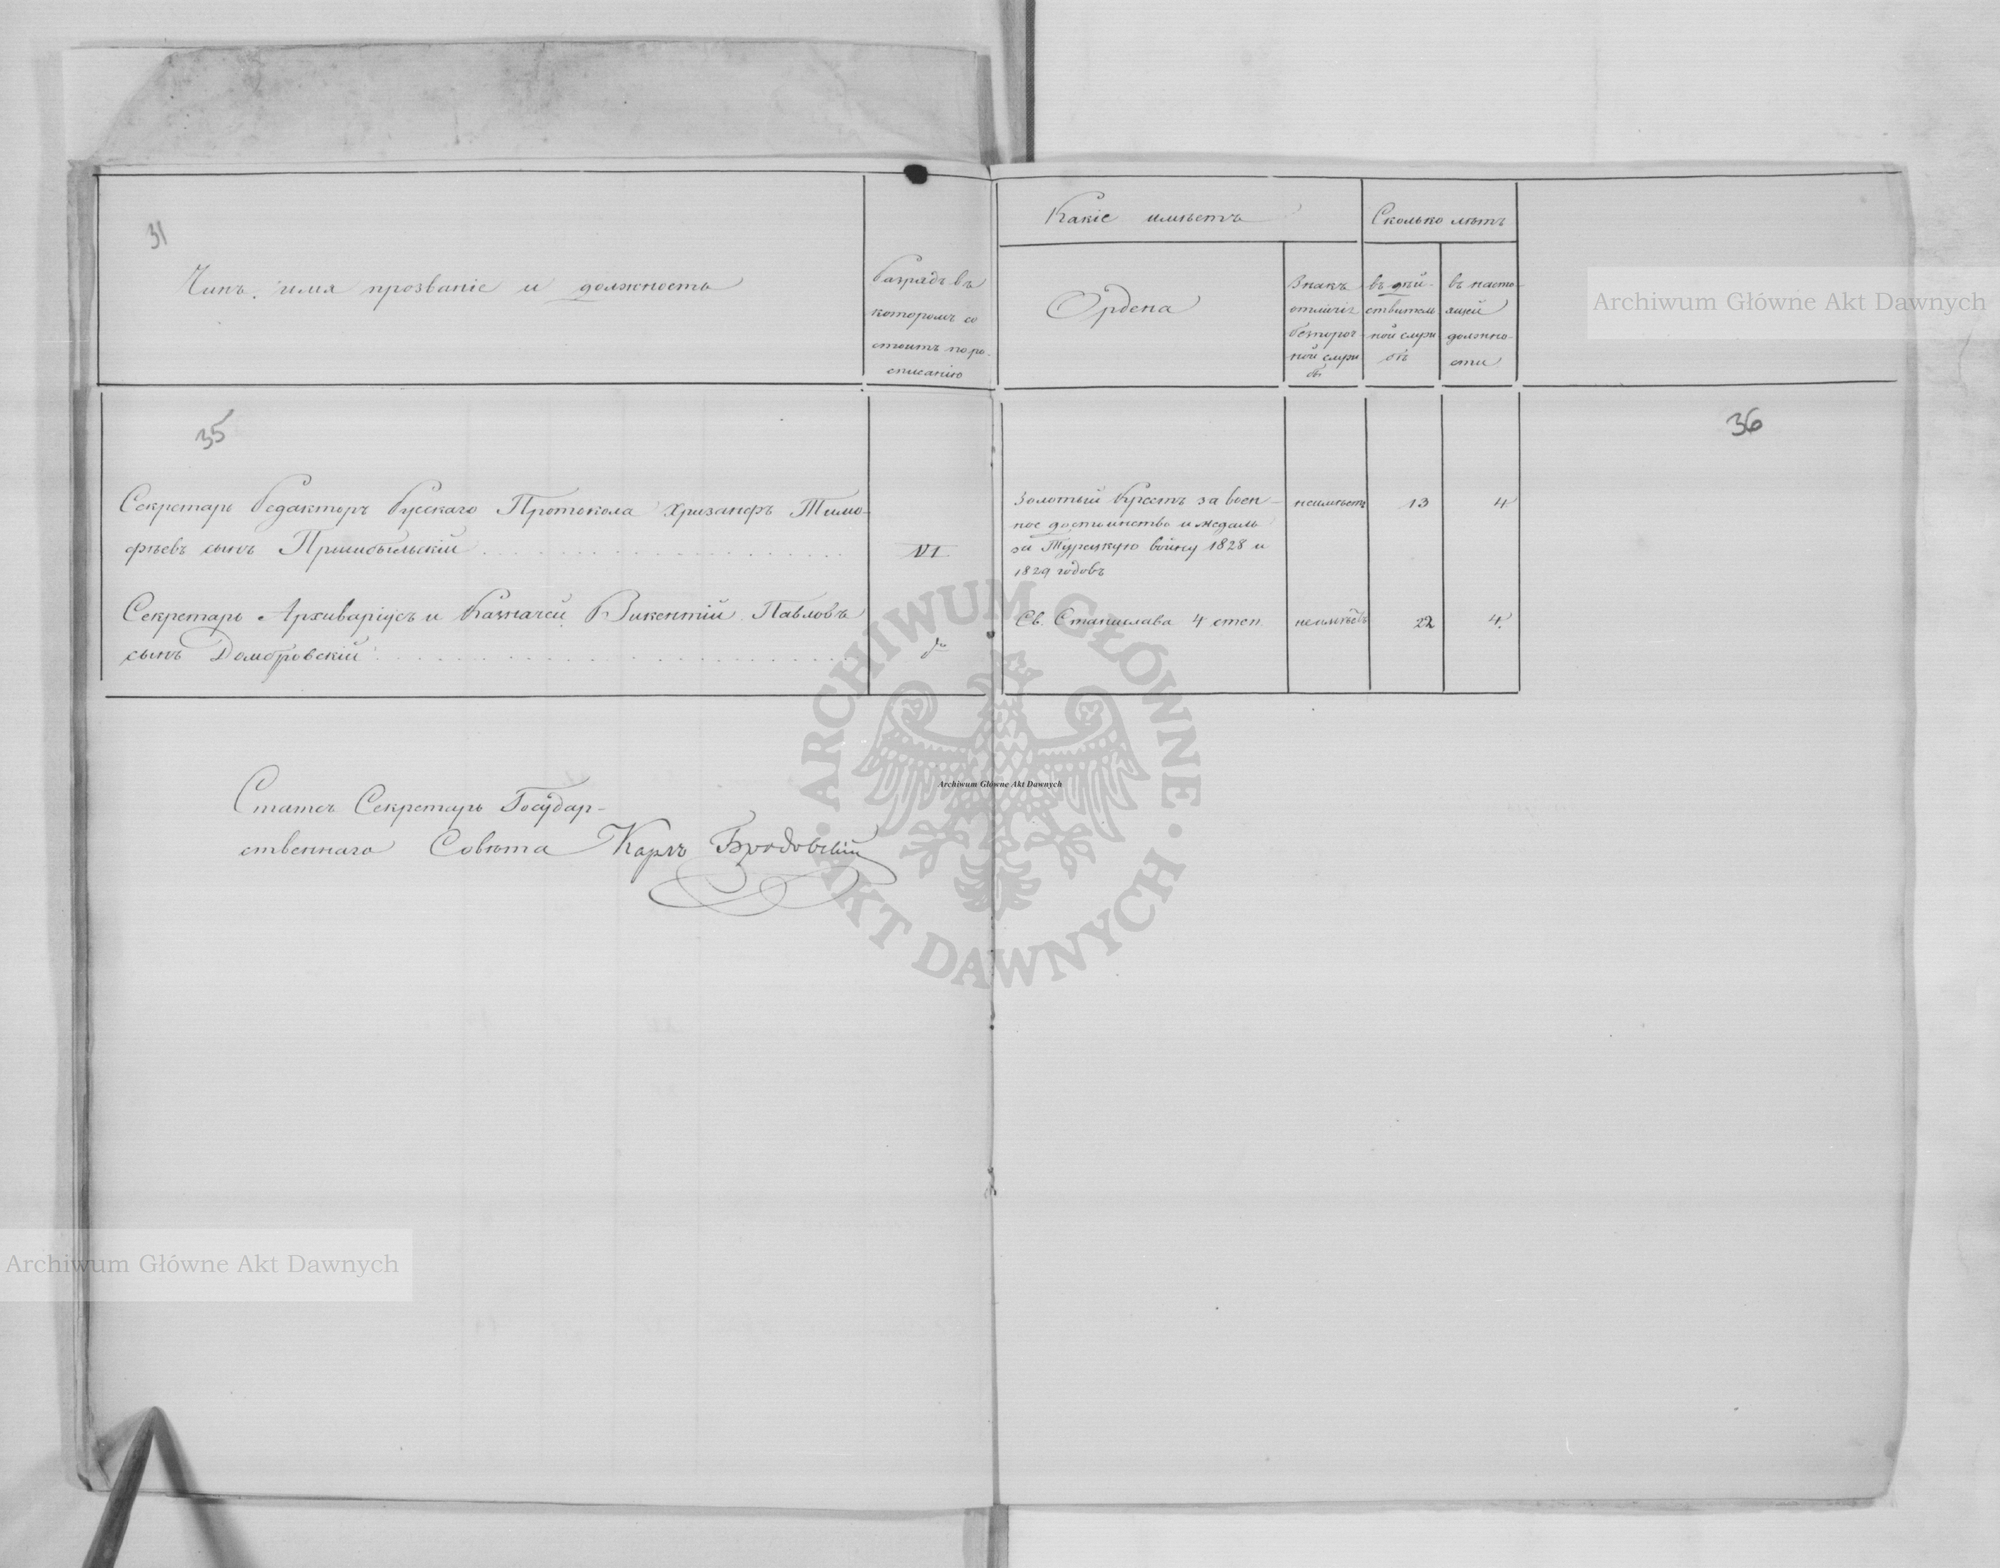 31
Чинъ, имя прозваніе и должность
Разрядъ въ
которомъ со
стоитъ по ро-
списанію
Какіе имѣетъ
Ордена
Знакъ
отличія
безпороч
ной служ
бы
Сколько лѣтъ
въ дѣй-
ствител
ной служ
бѣ
въ насто-
ящей
должно-
сти
Archiwum Główne Akt Dawnych
35
36
Секретарь Редакторъ Русскаго Протокола Хризанфъ Тимо-
фѣевъ сынъ Пришибыльскій
VI
Золотый Крестъ за воен-
ное достоинство и медаль
за Турецкую войну 1828 и
1829 годовъ
неимѣетъ
13
4
Секретарь Архиваріусъ и Казначей Викентій Павловъ
сынъ Домбровскій
до
Св. Станислава 4 степ.
неимѣетъ
22
4.
Статсъ Секретарь Государ-
ственнаго Совѣта Карлъ Бродовскій
ARCHIWUM GŁÓWNE AKT DAWNYCH
Archiwum Główne Akt Dawnych
Archiwum Główne Akt Dawnych